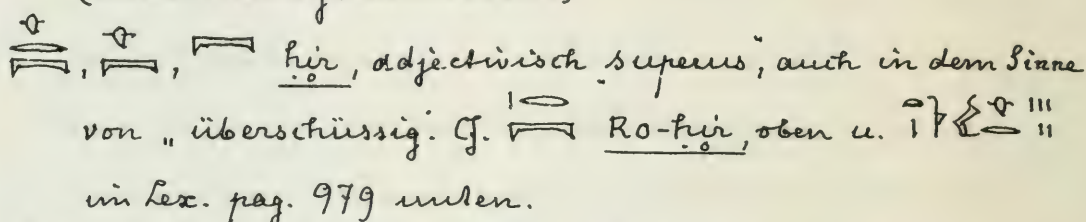 𓁷𓂋𓇯, 𓁷𓇯, 𓇯 ḥir, adjectivisch „superus“, auch in dem Sinne
von „überschüssig“. Cf. Ro-ḥir, oben u.
im Lex. pag. 979 unten.